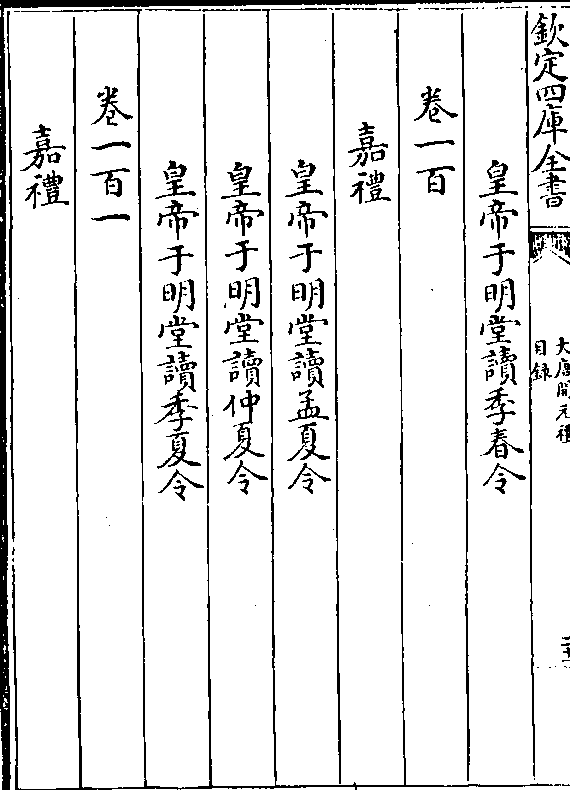 欽定四庫全書
大唐開元禮
目録
皇帝于明堂讀季春令
卷一百
嘉禮
皇帝于明堂讀孟夏令
皇帝于明堂讀仲夏令
皇帝于明堂讀季夏令
卷一百一
嘉禮